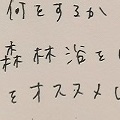 何をするか
森林浴を
をオススメし